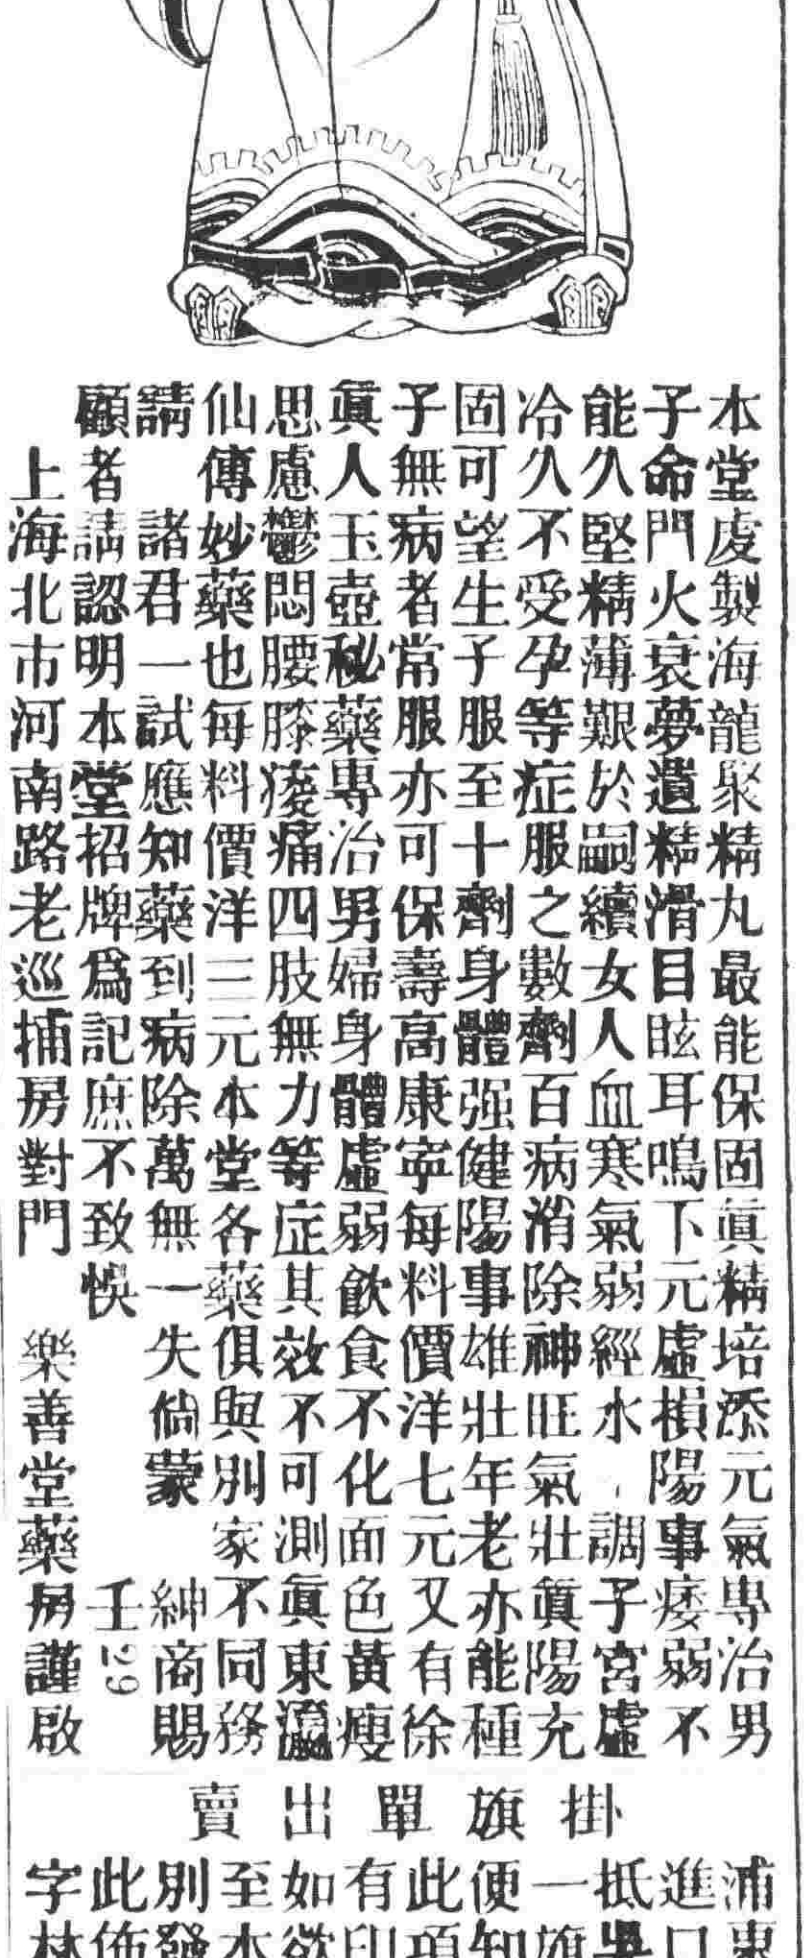 本堂虔製海龍聚精丸最能保固眞精培添元氣專治男
子命門火衰夢遺精滑目眩耳鳴下元虛損陽事痿弱不
能久堅精薄艱於嗣續女人血寒氣弱經水 調子宮虛
冷久不受孕等症服之數劑百病消除神旺氣壯眞陽充
固可望生子服至十劑身體强健陽事雄壯年老亦能種
子無病者常服亦可保壽高康寜每料價洋七元又有徐
眞人玉壺秘藥專治男婦身體虛弱飲食不化面色黃瘦
思慮鬱悶腰膝痠痛四肢無力等症其效不可測眞東瀛
仙傳妙藥也每料價洋三元本堂各藥俱與別家不同務
請 諸君一試應知藥到病除萬無一失倘蒙 紳商賜
顧者請認明本堂招牌爲記庶不致悞 壬29
上海北市河南路老巡捕房對門 樂善堂藥房謹啟
掛旗單出賣
浦東
進口
抵吳
一旗
便知
此項
有印
如欲
至本
別發
此佈
字林